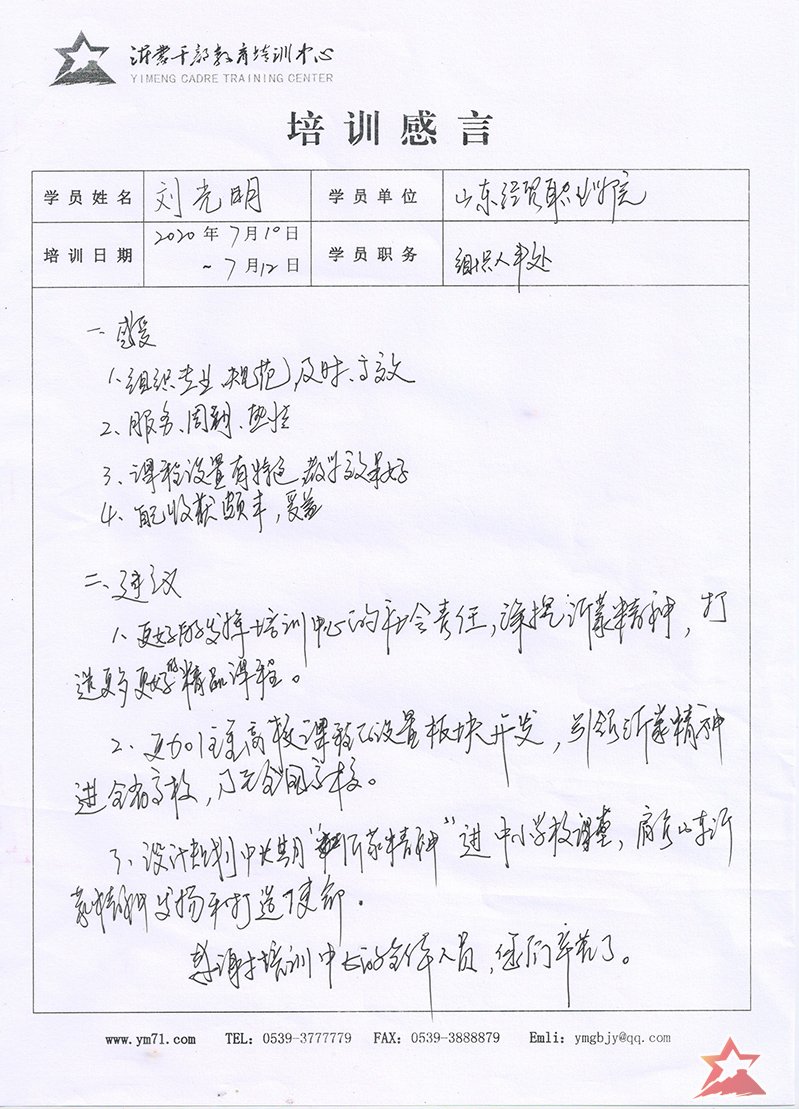 沂蒙干部教育培训中心
YIMENG CADRE TRAINING CENTER
培训感言
学员姓名 刘光明 学员单位 山东经贸职业学院
培训日期 2020年7月10日
~7月12日 学员职务 组织人事处
一、感受
1、组织专业、规范、及时、高效
2、服务、周到、热情
3、课程设置有特色 教学效果好
4、自己收获颇丰,受益
二、建议
1、更好的发挥培训中心的社会责任,深挖沂蒙精神,打
造更多更好的精品课程。
2、更加注重高校课程的设置板块开发,引领沂蒙精神
进全省高校,乃至全国高校。
3、设计规划中长期“沂蒙精神”进中小学校课堂,肩负山东沂
蒙精神发扬和打造使命。
感谢培训中心的全体人员,您们辛苦了。
www.ym71.com TEL: 0539-3777779 FAX: 0539-3888879 Emli: ymgbjy@qq.com